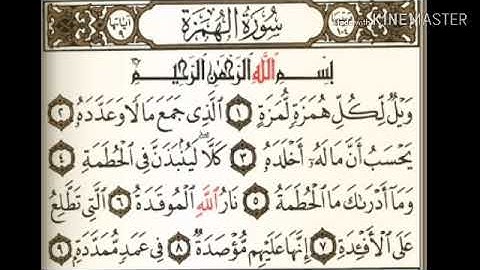 سُورَةُ الْهُمَزَةِ
آيَاتُهَا ٩
١٠٤
Made with KINEMASTER
بِسْمِ اللَّهِ الرَّحْمَٰنِ الرَّحِيمِ
وَيْلٌ لِّكُلِّ هُمَزَةٍ لُّمَزَةٍ ١ الَّذِي جَمَعَ مَالًا وَعَدَّدَهُ ٢
يَحْسَبُ أَنَّ مَالَهُ أَخْلَدَهُ ٣ كَلَّا لَيُنبَذَنَّ فِي الْحُطَمَةِ ٤
وَمَا أَدْرَىٰكَ مَا الْحُطَمَةُ ٥ نَارُ اللَّهِ الْمُوقَدَةُ ٦ الَّتِي تَطَّلِعُ
عَلَى الْأَفْئِدَةِ ٧ إِنَّهَا عَلَيْهِم مُّؤْصَدَةٌ ٨ فِي عَمَدٍ مُّمَدَّدَةٍ ٩